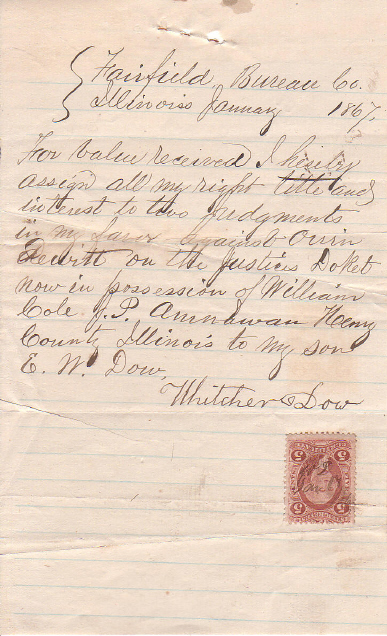 Fairfield, Bureau Co.
Illinois January 1867,
For value received I hereby
assign all my right title and
interest to two Judgments
in my favor against Orrin
Dewitt on the Justices Doket
now in possession of William
Cole J. P. Annawan Henry
County Illinois to my son
E. W. Dow,
Whitcher Dow
5 5
5 5